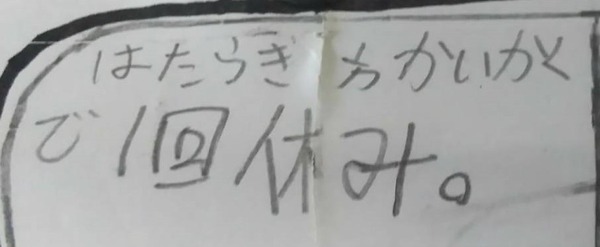 はたらぎ方かいかく
で1回休み。